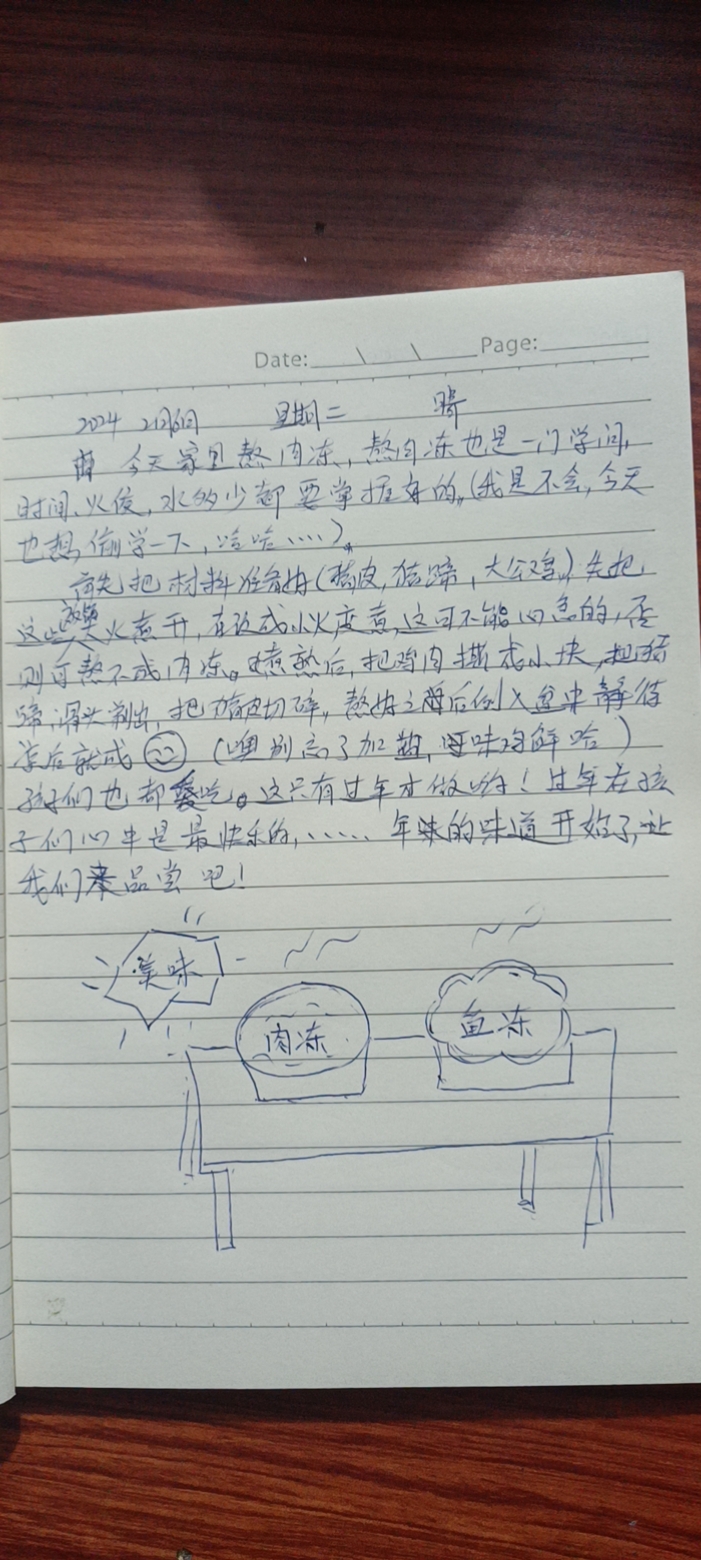 Date: \ \ Page:
2024 2月6日 星期二 晴
今天家里熬肉冻,熬肉冻也是一门学问,
时间、火候,水多少都要掌握好的。(我是不会,今天
也想偷学一下,哈哈……)。
首先把材料准备好(猪皮,猪蹄,大公鸡)先把
这些放锅大火煮开,在改成小火慢煮,这可不能心急的,否
则可熬不成肉冻。煮熟后,把鸡肉撕成小块,把猪
蹄骨头剃出,把猪皮切碎,熬好之后倒入盆中静待
凉后就成(噢别忘了加盐,调味增鲜哈)
孩子们也都爱吃。这只有过年才做哟!过年在孩
子们心中是最快乐的,……年味的味道开始了,让
我们来品尝吧!
美味
肉冻
鱼冻